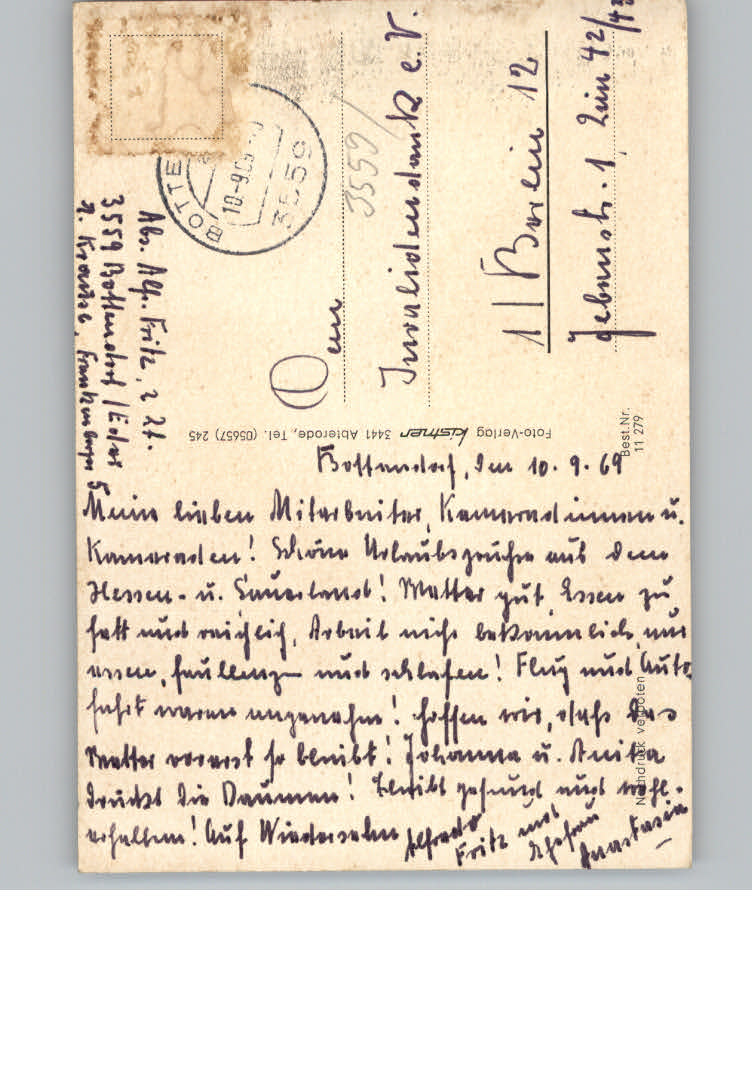 Bottendorf, den 10.9.69
Meine lieben Mitarbeiter, Kameradinnen u.
Kameraden! Schöne Urlaubsgrüße aus dem
Hessen- u. Sauerland! Wetter gut, Essen zu
fett und reichlich, Arbeit nicht bekömmlich, nur
essen, faullenzen und schlafen! Flug und Auto-
fahrt waren angenehm! Hoffen wir, daß das
Wetter vorerst so bleibt! Johanna u. Anita
drückt die Daumen! Bleibt gesund und wohl-
erhalten! Auf Wiedersehn Alfredo
Fritz und
Ehefrau
Anastasia
Abs. Alf. Fritz, z Zt.
3559 Bottendorf/Eder
b. Krause, Frankenberger 5
BOTTE
10-9.69
3559
3559/
Dem
Invalidendank e.V.
1/Berlin 12
1 Zim 42/43
Foto-Verlag kistner 3441 Abterode, Tel. (05657) 245
Best.Nr.
11 279
Nachdruck verboten